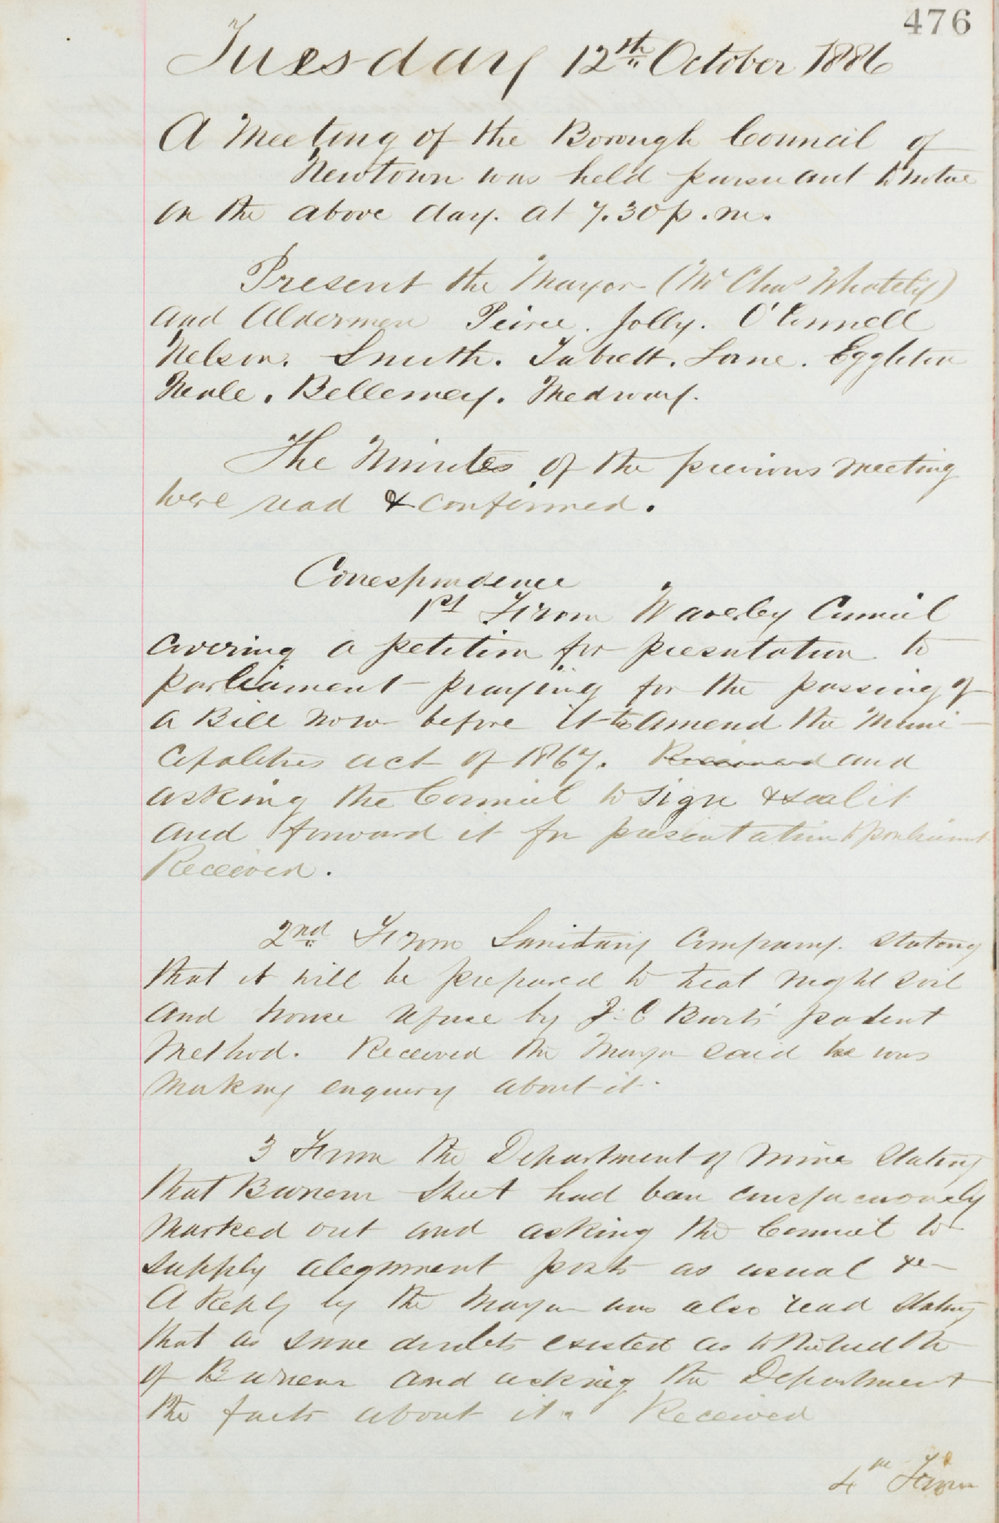 476
Tuesday 12th October 1886
A Meeting of the Borough Council of
Newtown was held pursuant to notice
on the above day. at 7.30 p.m.
Present the Mayor (Mr Chas Whately)
and Aldermen Peirce. Jolly. O'Connell
Nelson. Smith. Tabrett. Lane. Eggleton
Neale. Bellemey. Medway.
The Minutes of the previous meeting
were read & confirmed.
Correspondence
1st From Waverley Council
covering a petition for presentation to
parliament praying for the passing of
a Bill now before it to amend the Muni-
cipalities act of 1867. Received and
asking the Council to sign & seal it
and forward it for presentation to parliament
Received.
2nd From Sanitary Company. stating
that it will be prepared to treat night soil
and house refuse by J. C patent
Method. Received the Mayor said he was
making enquiry about it.
3 From the Department of Mines stating
that Bucknell Street had been conspicuously
marked out and asking the Council to
supply alignment posts as usual &c
A Reply by the Mayor was also read stating
that as some doubts existed as to the
of and asking the Department
the facts about it. Received
4th From